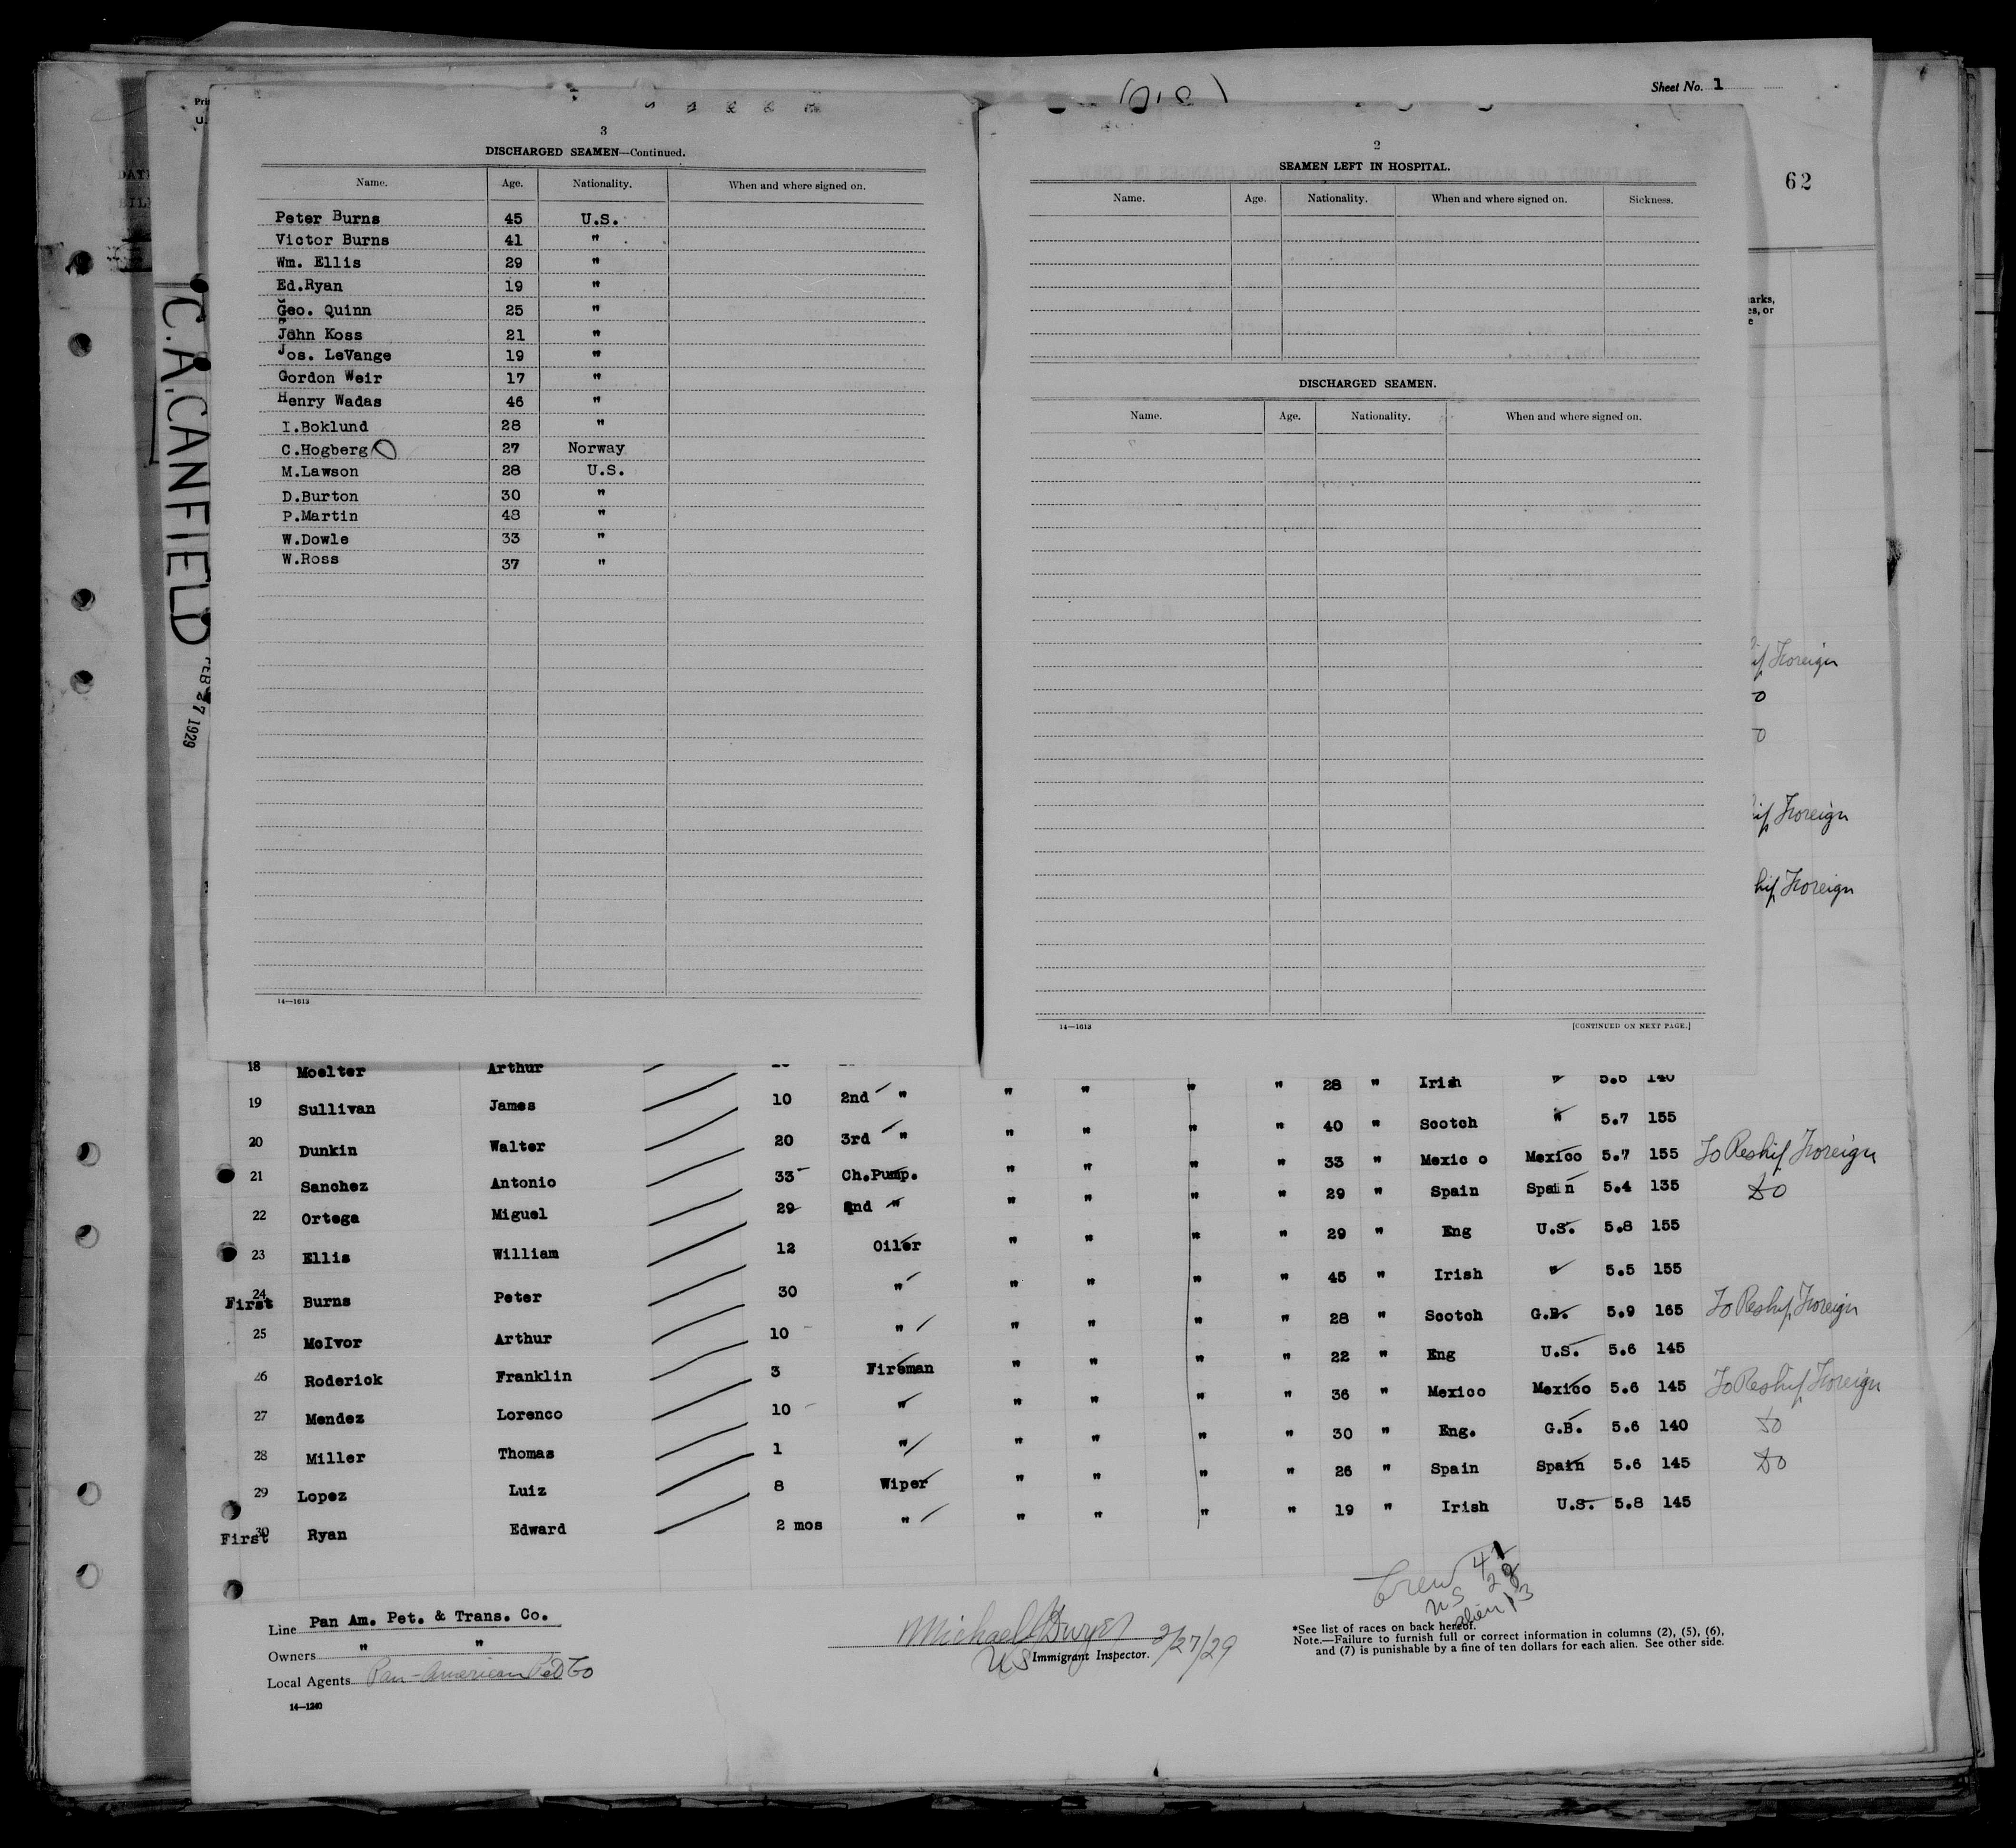 Sheet No. 1
62
C.A.CANFIELD
FEB 27 1929
3
DISCHARGED SEAMEN—Continued.
Name. Age. Nationality. When and where signed on.
Peter Burns 45 U.S.
Victor Burns 41 "
Wm. Ellis 29 "
Ed.Ryan 19 "
Geo. Quinn 25 "
John Koss 21 "
Jos. LeVange 19 "
Gordon Weir 17 "
Henry Wadas 46 "
I.Boklund 28 "
C.Hogberg 27 Norway
M.Lawson 28 U.S.
D.Burton 30 "
P.Martin 48 "
W.Dowle 33 "
W.Ross 37 "
14—1613
2
SEAMEN LEFT IN HOSPITAL.
Name. Age. Nationality. When and where signed on. Sickness.
DISCHARGED SEAMEN.
Name. Age. Nationality. When and where signed on.
14—1613 [CONTINUED ON NEXT PAGE.]
Foreign
Foreign
Foreign
18 Moelter Arthur " " " " 28 " Irish " 5.6 140
19 Sullivan James 10 2nd " " " " " 40 " Scotch " 5.7 155
20 Dunkin Walter 20 3rd " " " " " 33 " Mexic o Mexico 5.7 155 To Reship Foreign
21 Sanchez Antonio 33 Ch.Pump. " " " " 29 " Spain Spain 5.4 135 Do
22 Ortega Miguel 29 2nd " " " " " 29 " Eng U.S. 5.8 155
23 Ellis William 12 Oiler " " " " 45 " Irish " 5.5 155
First 24 Burns Peter 30 " " " " " 28 " Scotch G.B. 5.9 165 To Reship Foreign
25 McIvor Arthur 10 " " " " " 22 " Eng U.S. 5.6 145
26 Roderick Franklin 3 Fireman " " " " 36 " Mexico Mexico 5.6 145 To Reship Foreign
27 Mendez Lorenco 10 " " " " " 30 " Eng. G.B. 5.6 140 Do
28 Miller Thomas 1 " " " " " 26 " Spain Spain 5.6 145 Do
29 Lopez Luiz 8 Wiper " " " " 19 " Irish U.S. 5.8 145
First 30 Ryan Edward 2 mos " " " "
Crew 41
US 28
alien 13
Line Pan Am. Pet. & Trans. Co.
Owners " "
Local Agents Pan-American Pet Co
14—1240
Michael Dwyer 2/27/29
US Immigrant Inspector.
*See list of races on back hereof.
Note.—Failure to furnish full or correct information in columns (2), (5), (6),
and (7) is punishable by a fine of ten dollars for each alien. See other side.